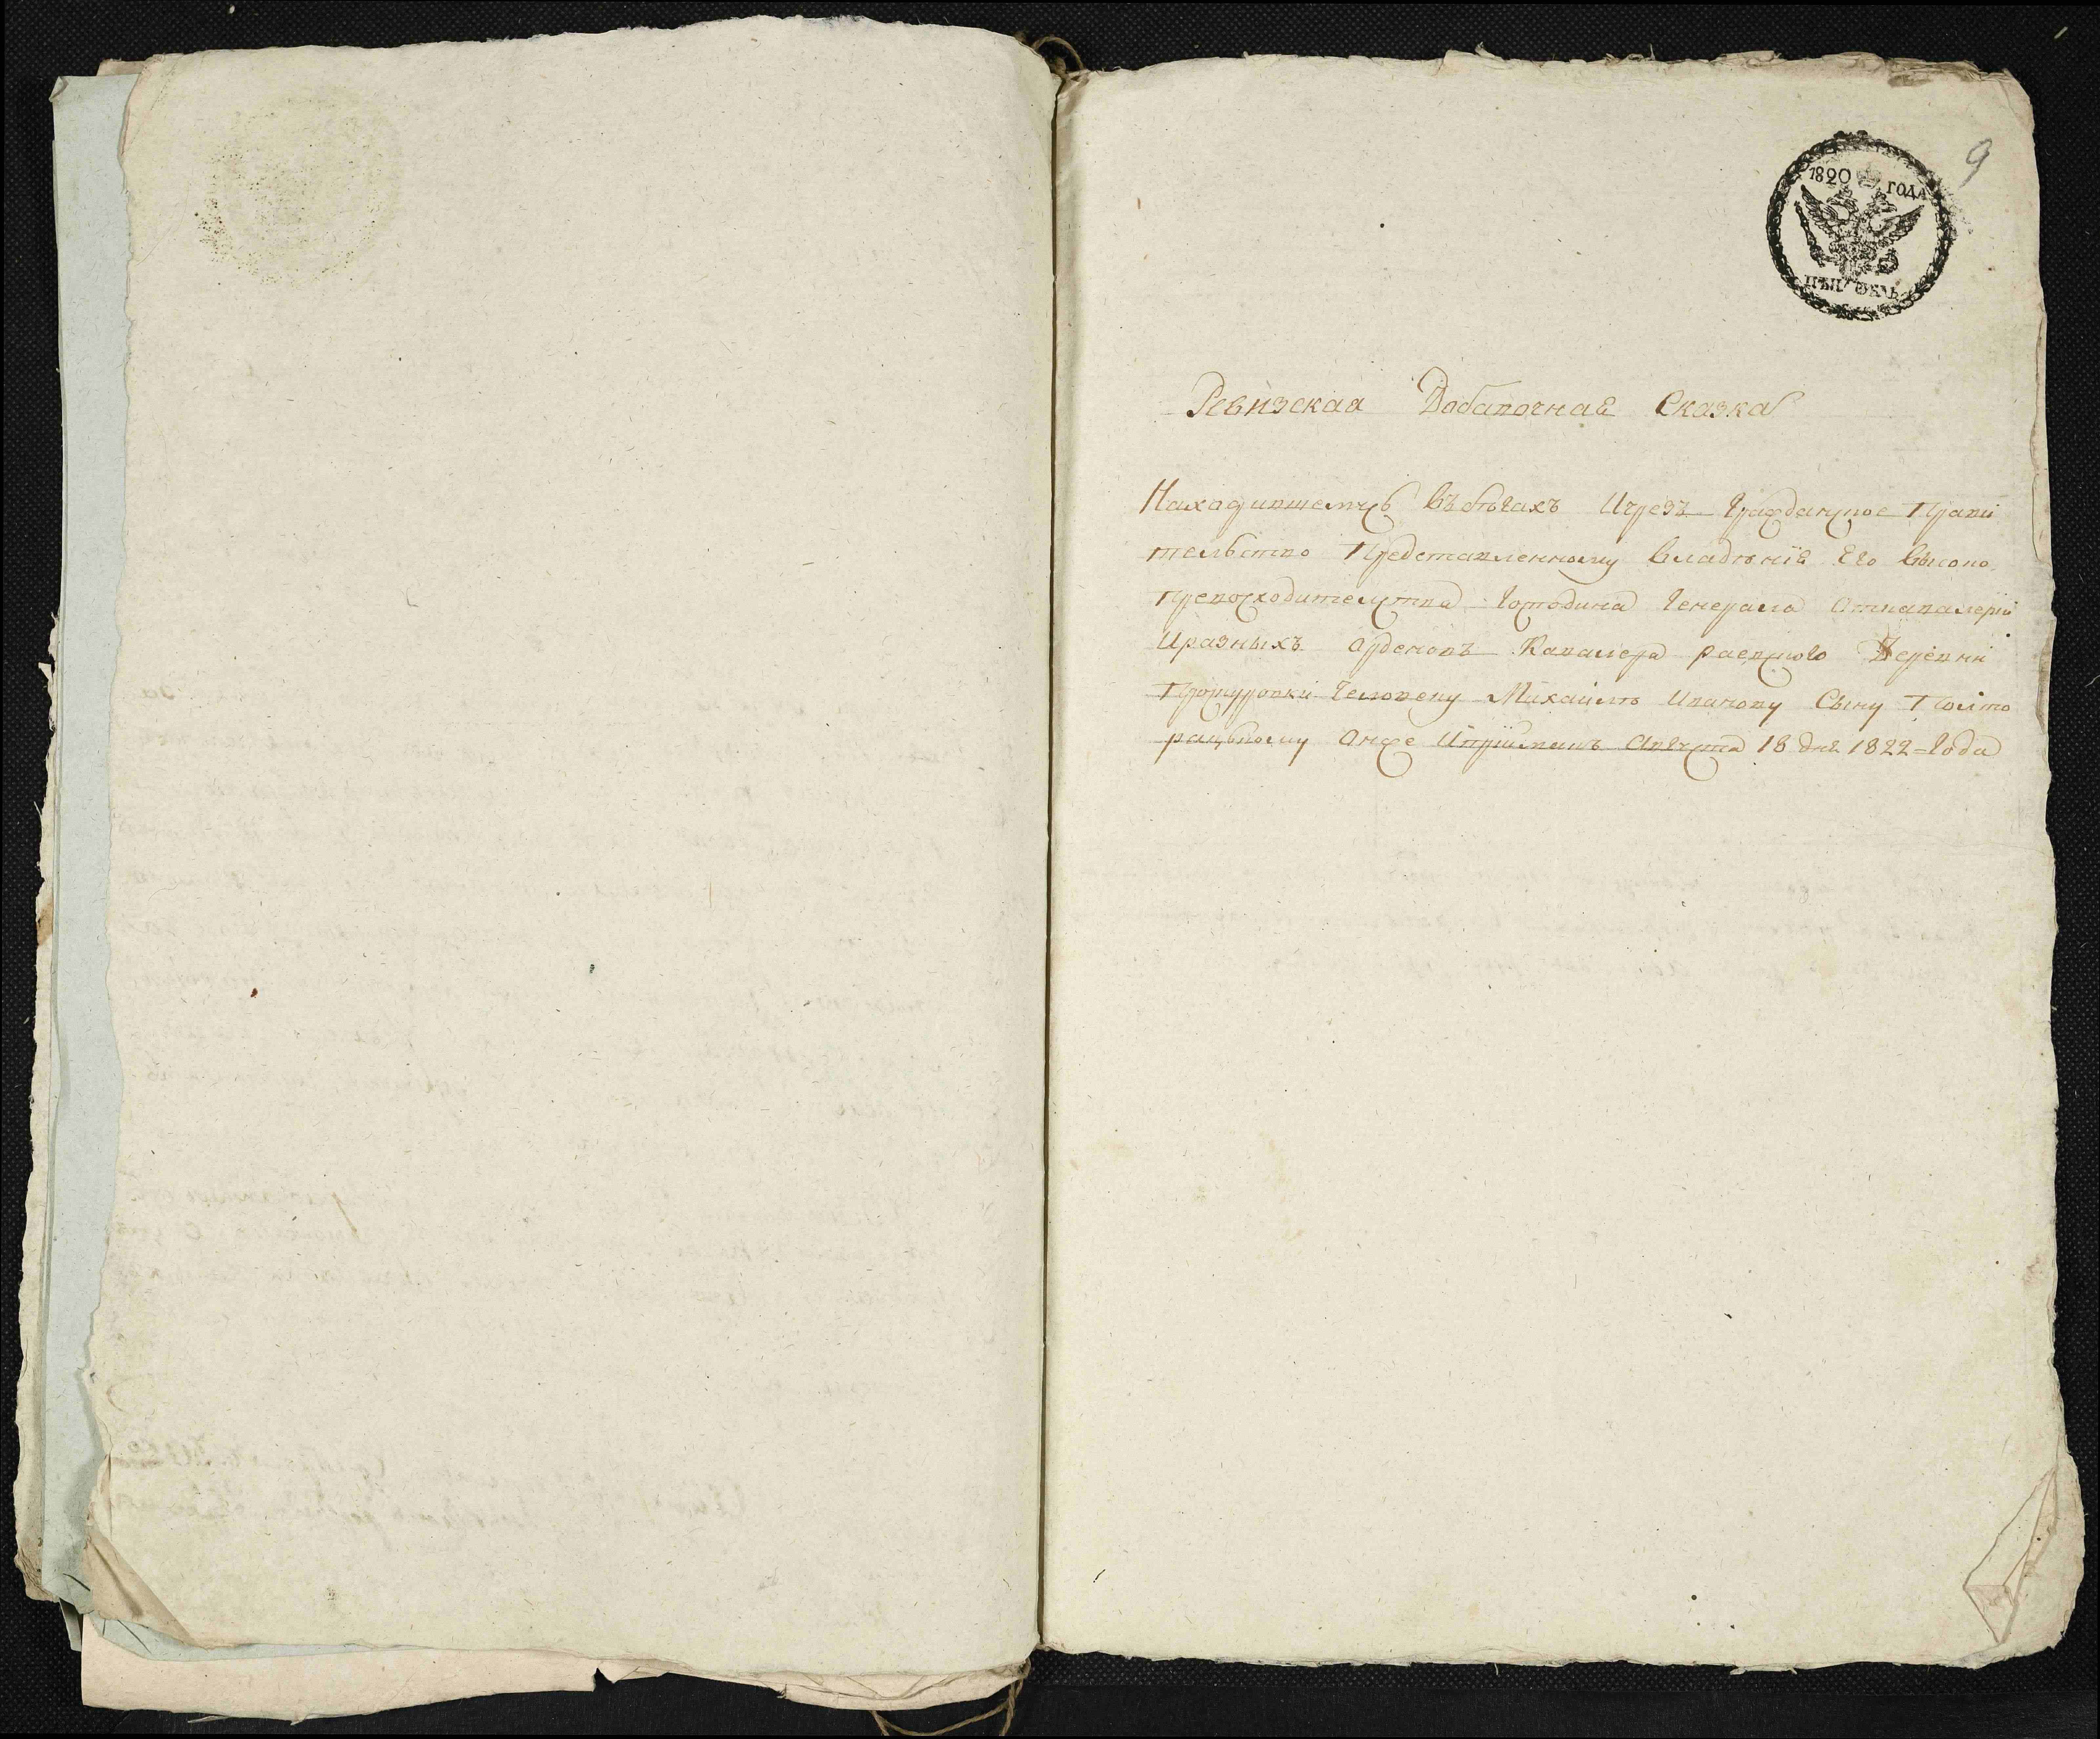 9
1820 ГОДА
Ревизская Добавочная Сказка
Находившемусь въбѣгахъ Ичрезъ Гражданское Прави
тельство Представленному Владѣніе Его Высоко
Превосходительства Господина Генерала Откавалерїи
Иразныхъ Орденовъ Кавалера Раевского Деревни
Человеку Михайлѣ Иванову Сыну Полто
рацькому Онже Августа 18 дня 1822 = Года